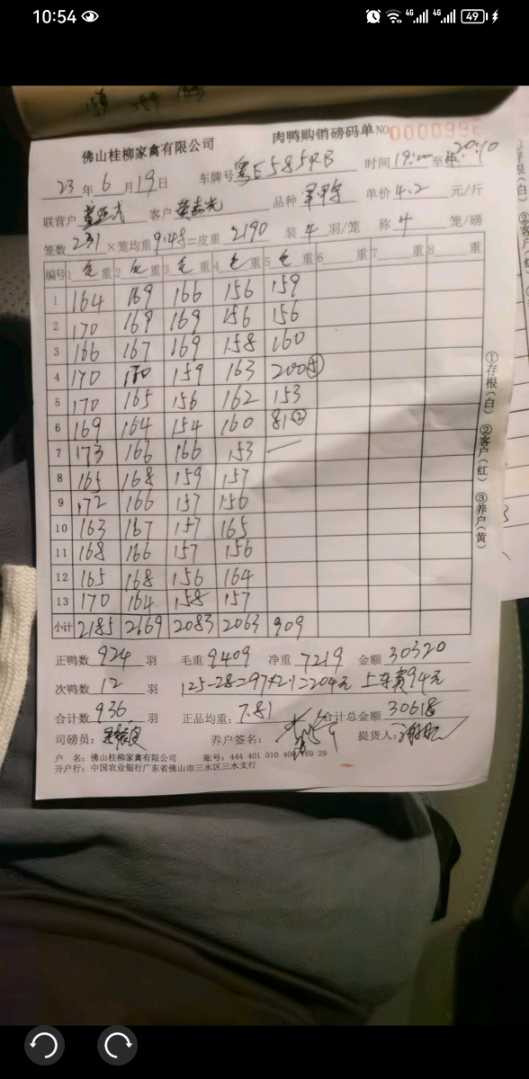 10:54
4G 4G 49
佛山桂柳家禽有限公司
肉鸭购销磅码单 NO 0000996
23 年 6 月 19 日 车牌号 粤E585RB 时间 19:00 至 20:10
联营户 客户 品种 单价 4.2 元/斤
笼数 231 × 笼均重 9.48 = 皮重 2190 装 4 羽/笼 称 4 笼/磅
编号 1 毛 重 2 毛 重 3 毛 重 4 毛 重 5 毛 重 6 重 7 重 8 重
1 164 169 166 156 159
2 170 169 169 156 156
3 166 167 169 158 160
4 170 170 159 163 200⑤
5 170 165 156 162 153
6 169 164 154 160 81②
7 173 166 166 153
8 165 168 159 157
9 172 166 157 156
10 163 167 157 165
11 168 166 157 156
12 165 168 156 164
13 170 164 158 157
小计 2185 2169 2083 2063 909
①存根(白) ②客户(红) ③养户(黄)
正鸭数 924 羽 毛重 9409 净重 7219 金额 30320
次鸭数 12 羽 125-28=97×2.1=204元 上车费94元
合计数 936 羽 正品均重: 7.81 合计总金额 30618
司磅员: 养户签名: 提货人:
户 名: 佛山桂柳家禽有限公司 账号: 444 401 010 400 29
开户行: 中国农业银行广东省佛山市三水区三水支行